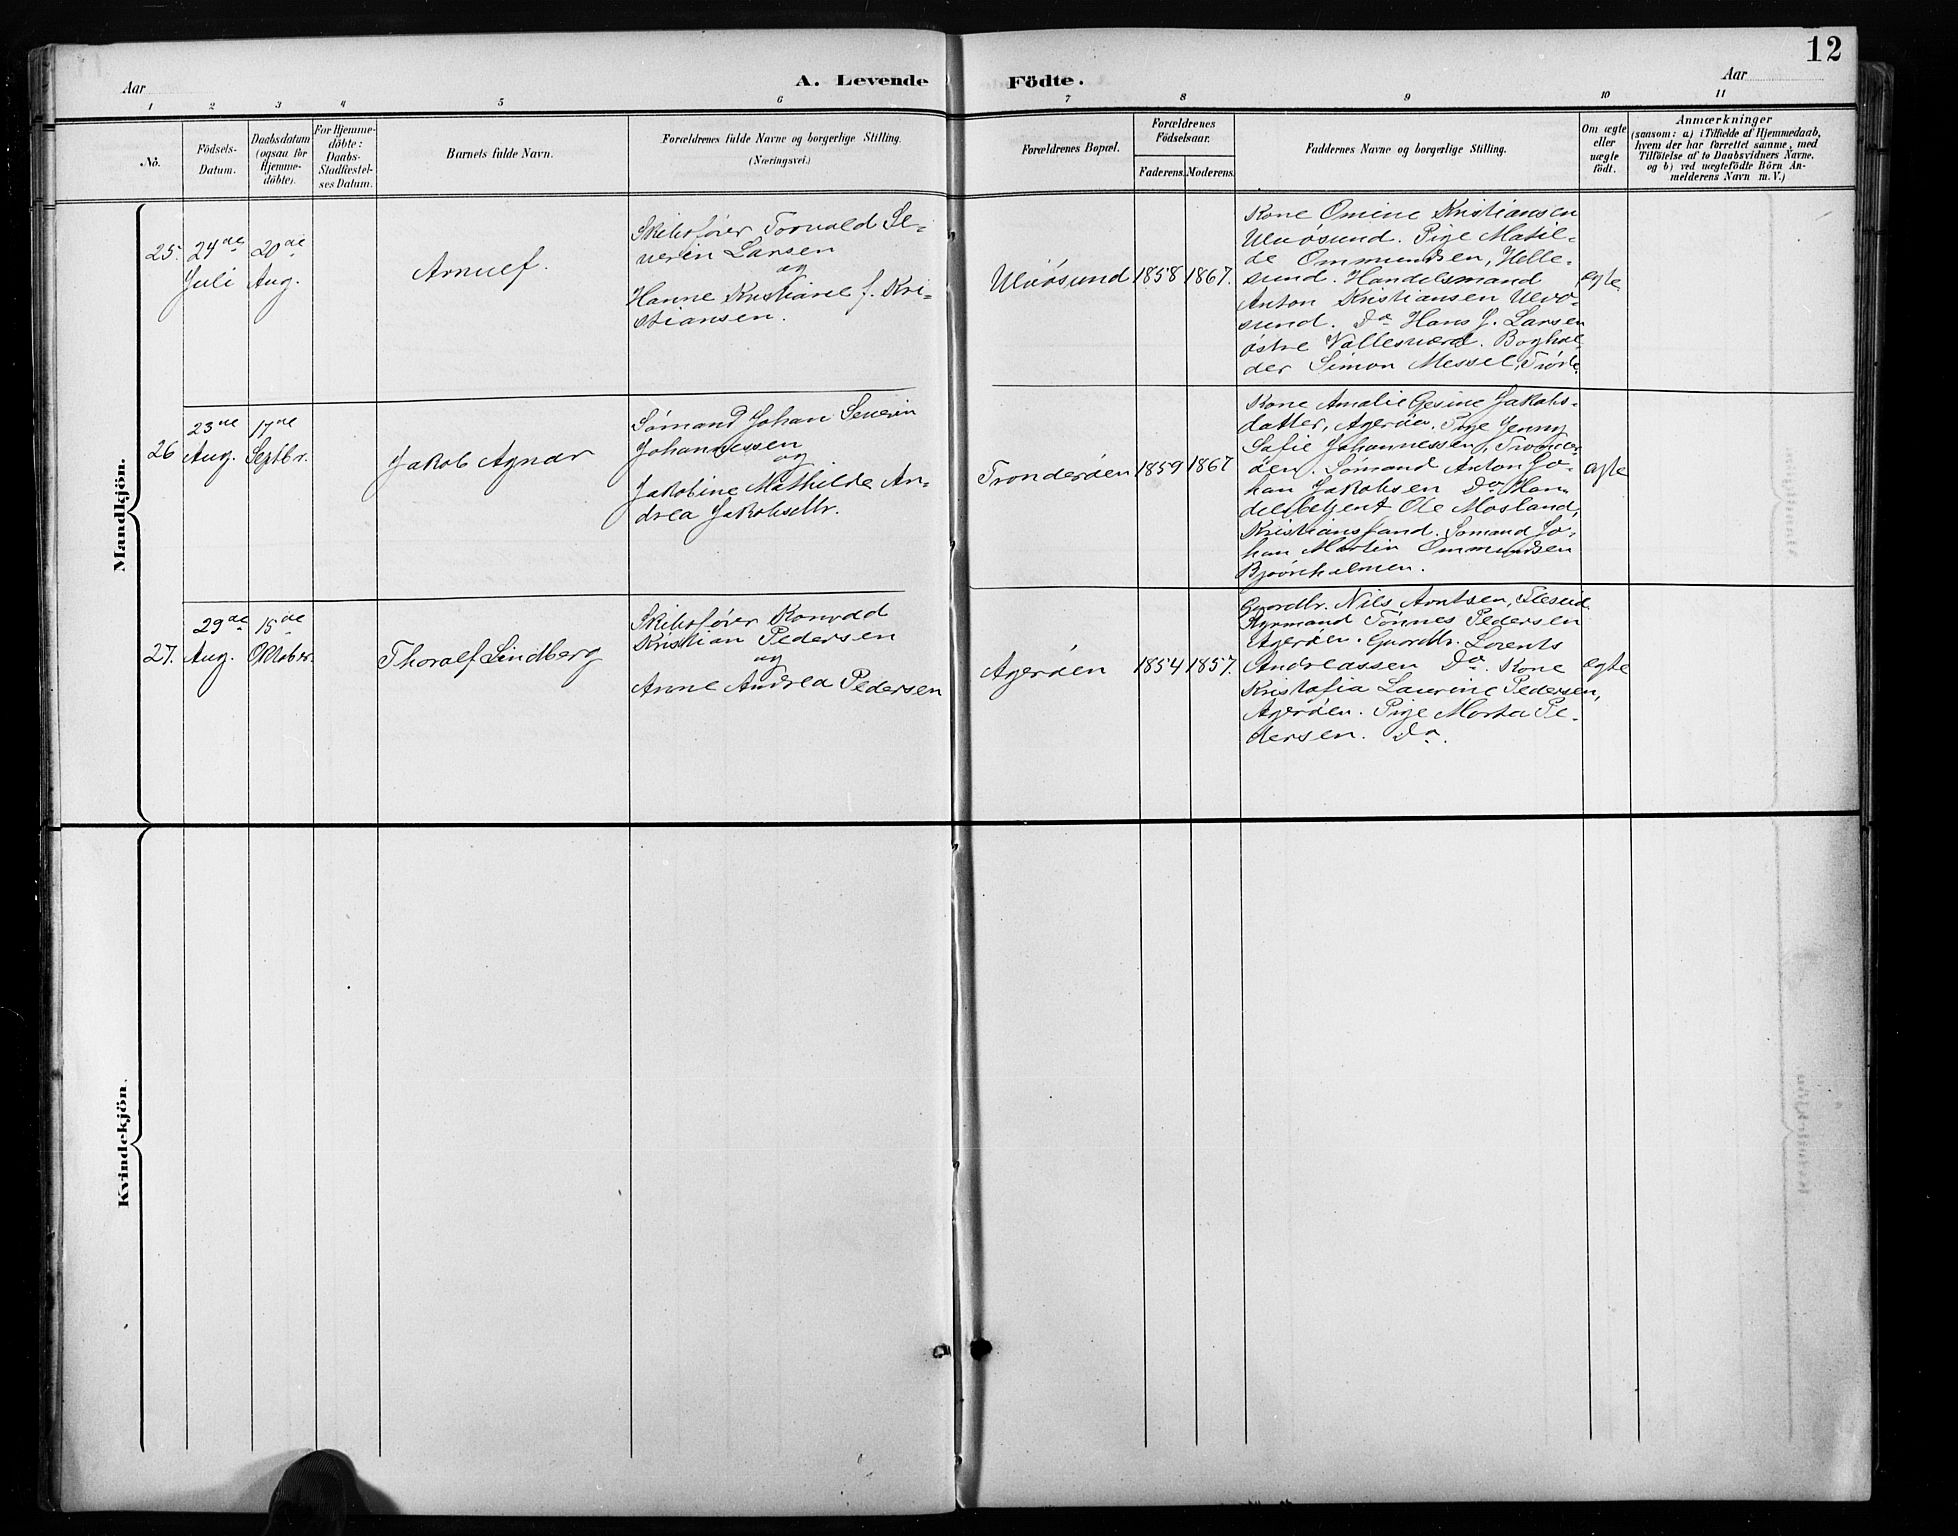 12
Aar
A. Levende Födte.
Aar
1 2 3 4 5 6 7 8 9 10 11
No.
Födsels-
Datum.
Daabsdatum
(ogsaa for
Hjemme-
döbte).
For Hjemme-
döbte:
Daabs-
Stadfæstel-
ses Datum.
Barnets fulde Navn.
Forældrenes fulde Navne og borgerlige Stilling.
(Næringsvei.)
Forældrenes Bopæl.
Forældrenes
Födselsaar.
Faderens. Moderens.
Faddernes Navne og borgerlige Stilling.
Om ægte
eller
uægte
födt.
Anmærkninger
(saasom: a) i Tilfælde af Hjemmedaab,
hvem der har forrettet samme, med
Tilföielse af to Daabsvidners Navne.
og b) ved uægtefödte Börn An-
melderens Navn m. V.)
Mandkjön.
25.
24de
Juli
20de
Aug.
Arnulf.
Skibsfører Torvald Se-
verin Larsen
og
Hanne Kristiane f. Kri-
stiansen.
Ulvøsund
1858
1867.
Kone Omine Kristiansen
Ulvøsund. Pige Matil-
de Ommundsen, Helle-
sund. Handelsmand
Anton Kristiansen Ulvø-
sund. Do Hans J. Larsen
østre Vallesværd. Boghol-
der Simon Messel,
egte
26
23de
Aug.
17de
Septbr.
Jakob Agnar
Sømand Johan Severin
Johannessen
og
Jakobine Mathilde An-
drea Jakobsdtr.
Trondøen
1859
1867
Kone Amalie Gesine Jakobs-
datter, Agerøen. Pige Jenny
Sofie Johannessen,
øen. Sømand Anton Jo-
han Jakobsen Do. Han-
delsbetjent Ole Mosland,
Kristianssand. Sømand Jo-
han Martin Ommundsen
egte
27.
29de
Aug.
15de
Oktober.
Thoralf Lindberg
Skibsfører Konrad
Kristian Pedersen
og
Anne Andrea Pedersen
Agerøen
1854
1857.
Gaardbr. Nils Arntsen,
Styrmand Tønnes Pedersen
Agerøen. Gaardbr. Lorents
Andreassen Do. Kone
Kristofia Laurine Pedersen,
Agerøen. Pige Marta Pe-
dersen. Do.
egte
Kvindekjön.